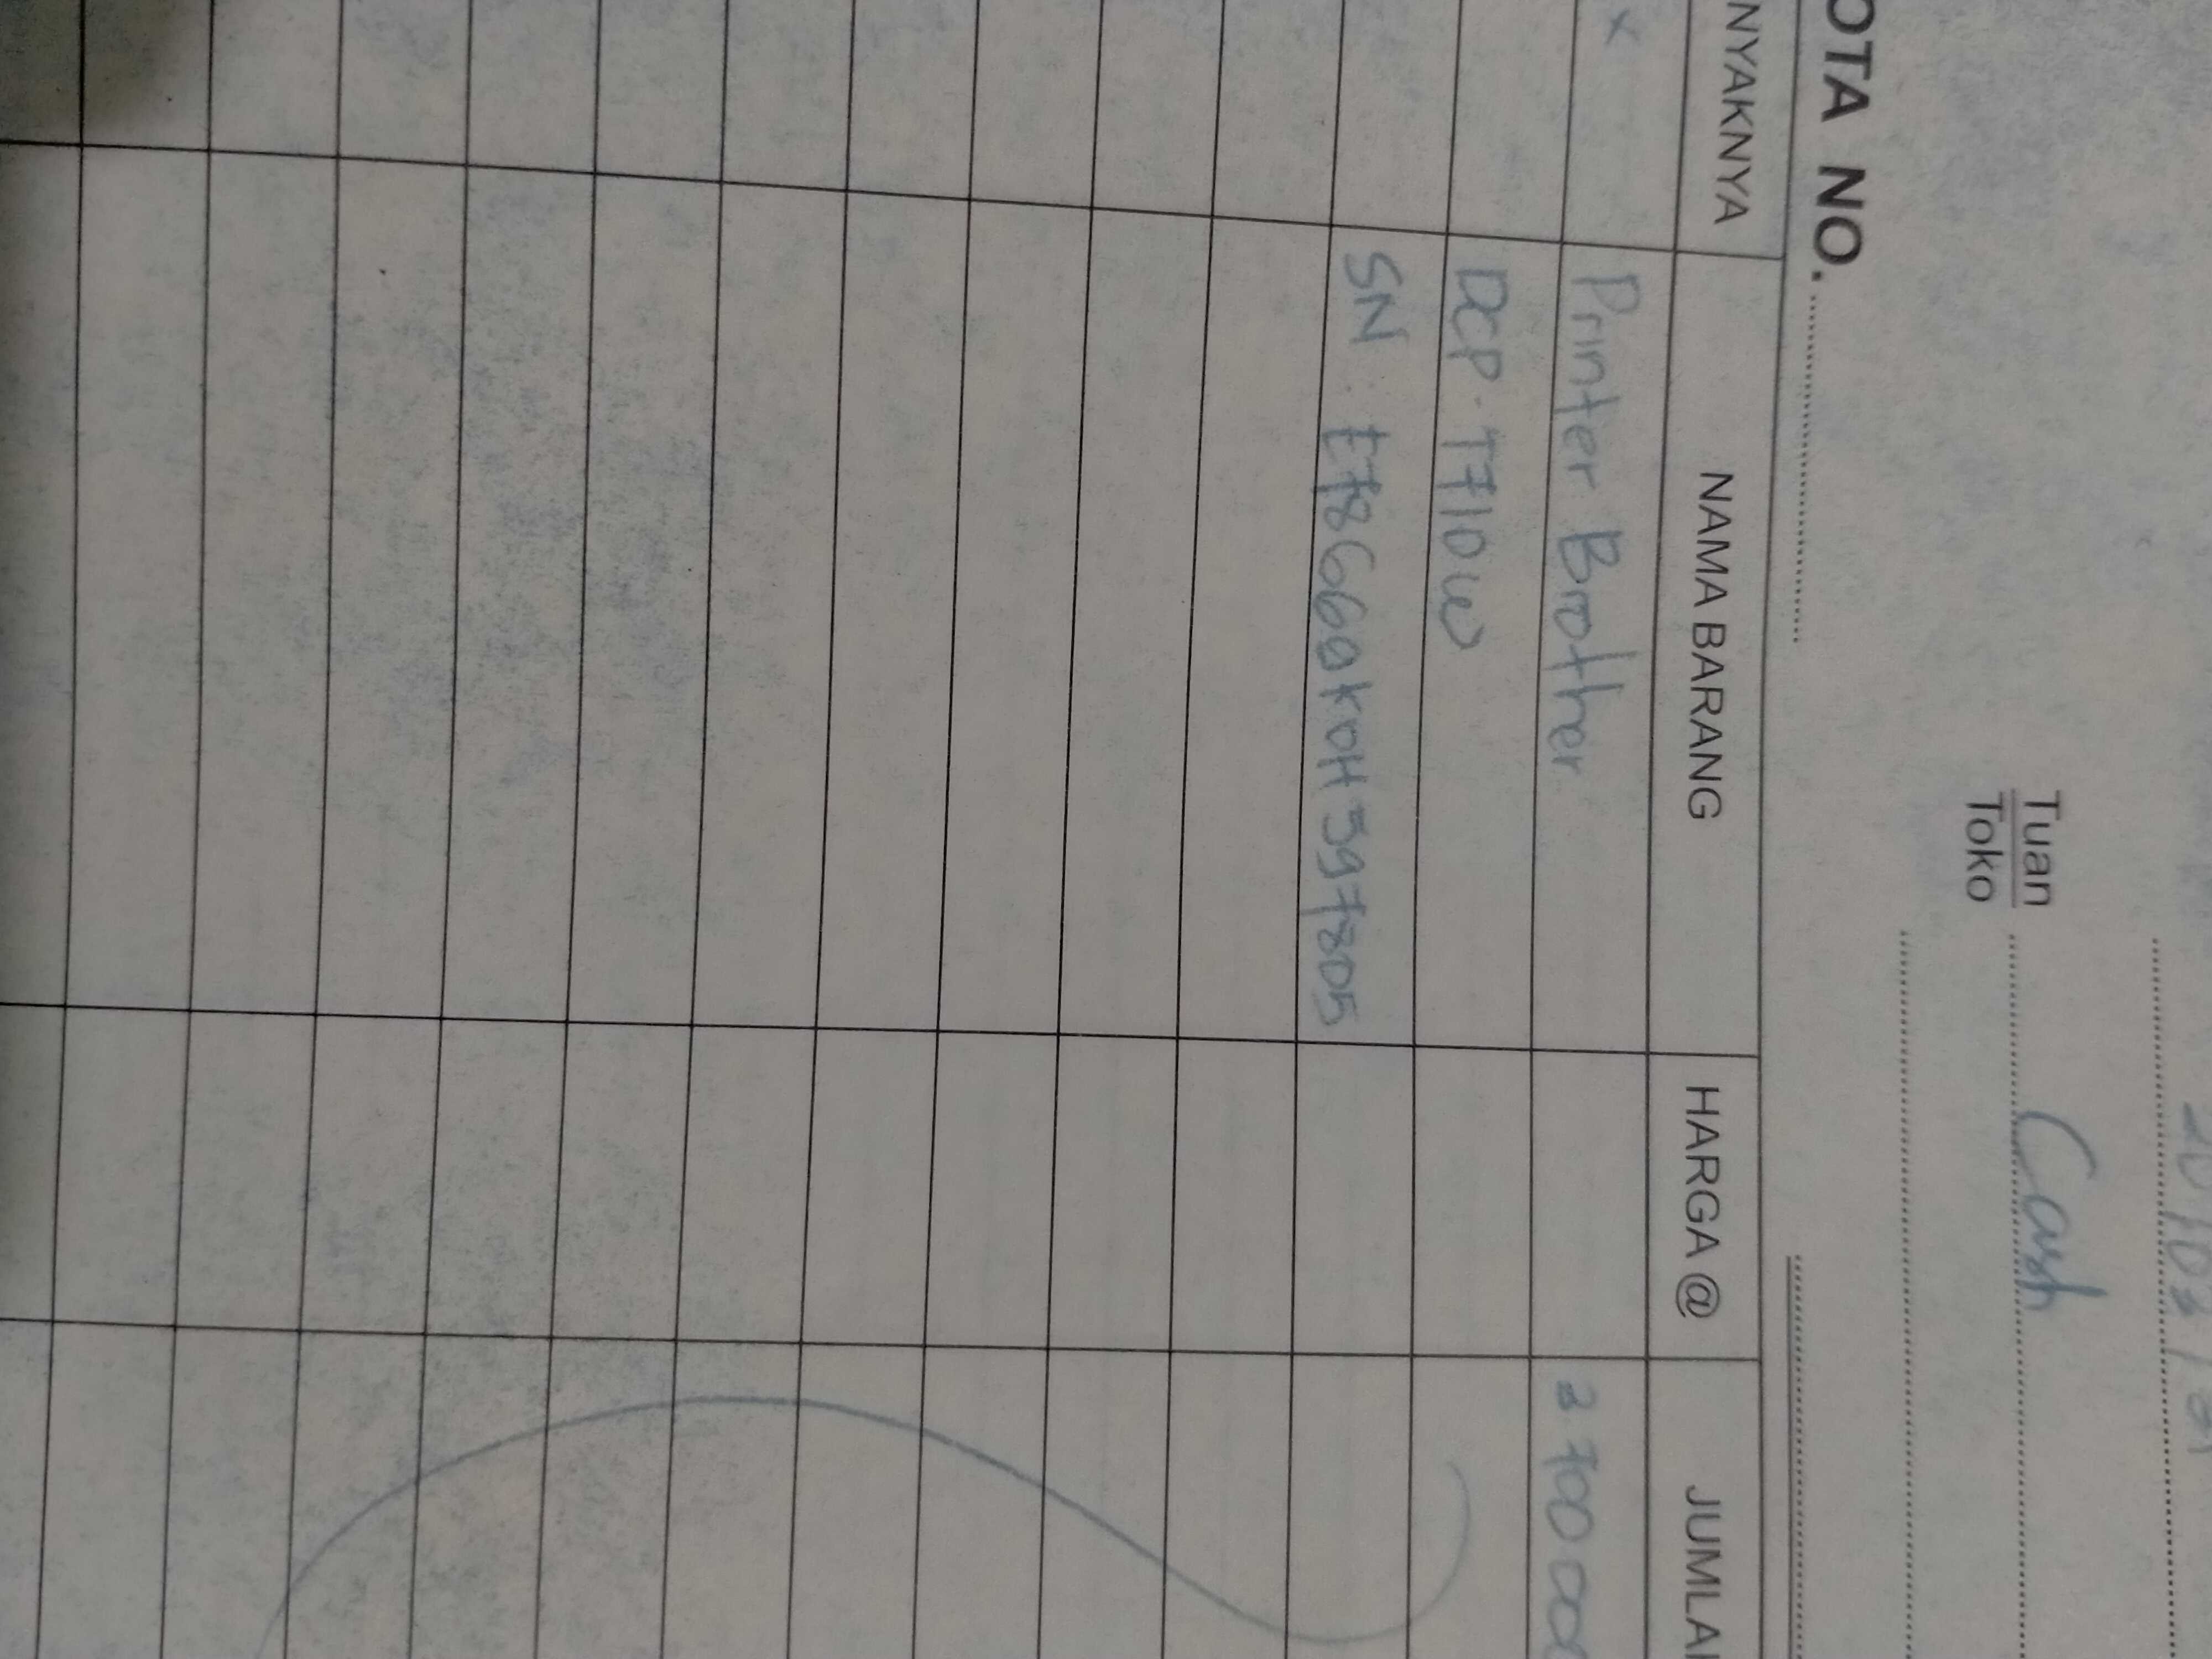 Tuan
Toko
Cash
OTA NO.
NYAKNYA NAMA BARANG HARGA @ JUMLA
x Printer Brother 2 700 000
DCP-T710W
SN: E78G66akoH597805